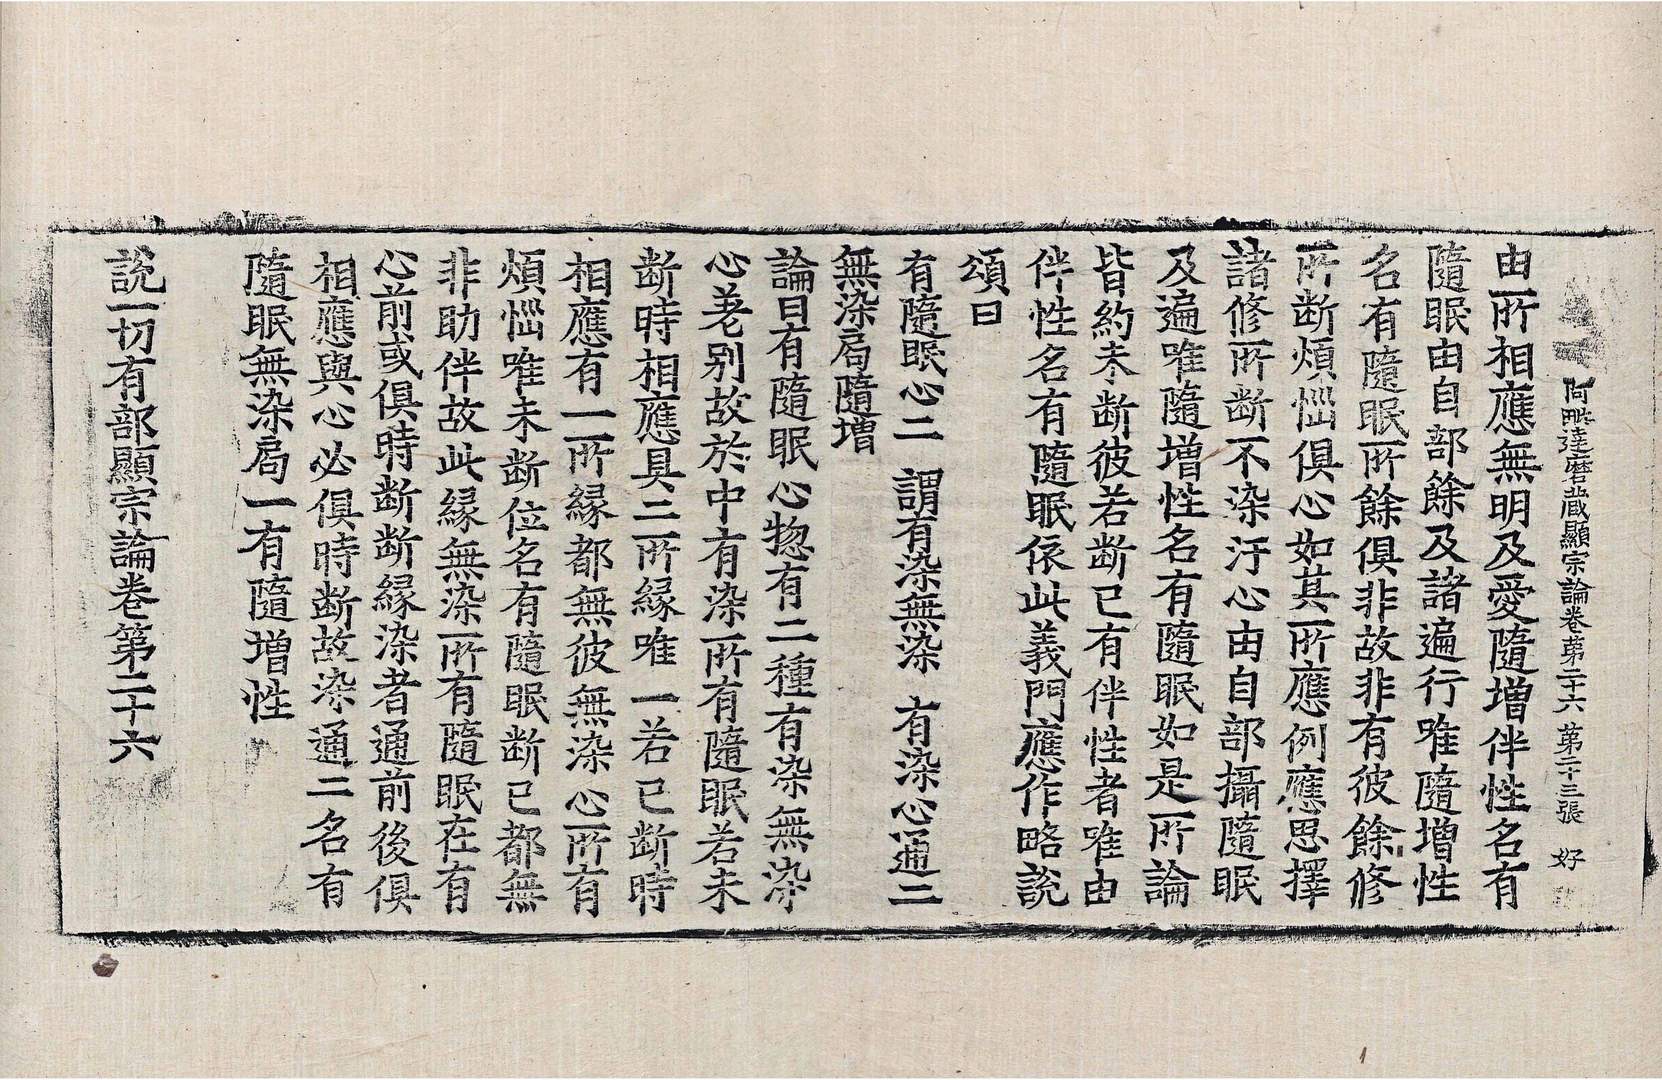 阿毗達磨藏顯宗論卷第二十六　第二十三張　好
由所相應無明及愛隨增伴性名有
隨眠由自部餘及諸遍行唯隨增性
名有隨眠所餘俱非故非有彼餘修
所断煩惱俱心如其所應例應思擇
諸修所断不染汙心由自部攝隨眠
及遍唯隨增性名有隨眠如是所論
皆約未断彼若断已有伴性者唯由
伴性名有隨眠依此義門應作略說
頌曰
有隨眠心二　謂有染無染　有染心通二
無染局隨增
論曰有隨眠心惣有二種有染無染
心差别故於中有染所有隨眠若未
断時相應具二所緣唯一若已断時
相應有一所緣都無彼無染心所有
煩惱唯未断位名有隨眠断已都無
非助伴故此緣無染所有隨眠在有
心前或俱時断断緣染者通前後俱
相應與心必俱時断故染通二名有
隨眠無染局一有隨增性
說一切有部顯宗論卷第二十六